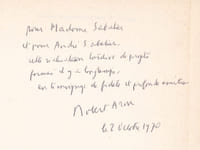 Pour Madame Sabatier
et pour André Sabatier,
cette réalisation de projets
formés il y a longtemps,
en témoignage de fidèle et profonde amitié
Robert Aron
le 2 Octobre 1970